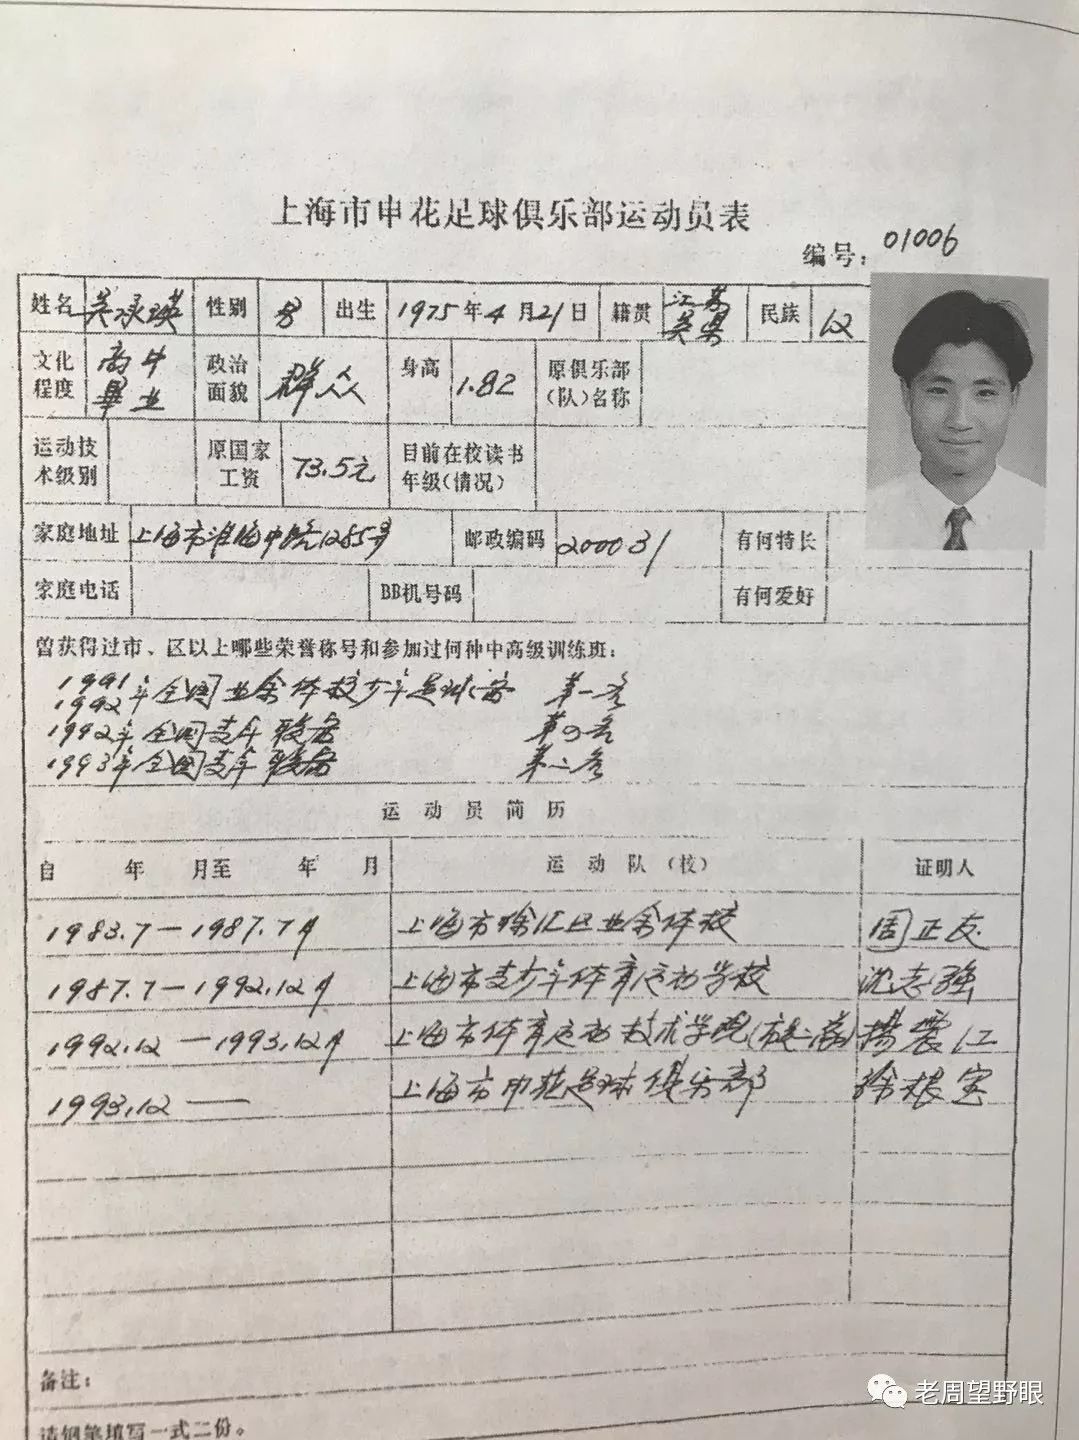 上海市申花足球俱乐部运动员表
编号：01006
姓名 吴承瑛 性别 男 出生 1975年4月21日 籍贯 江苏吴县 民族 汉
文化程度 高中毕业 政治面貌 群众 身高 1.82 原俱乐部（队）名称
运动技术级别 原国家工资 73.5元 目前在校读书年级（情况）
家庭地址 上海市淮海中路1285号 邮政编码 200031 有何特长
家庭电话 BB机号码 有何爱好
曾获得过市、区以上哪些荣誉称号和参加过何种中高级训练班：
1991
1992年全国业余体校少年足球赛 第一名
1992年全国青年联赛 第四名
1993年全国青年联赛 第二名
运动员简历
自 年 月至 年 月 运动队（校） 证明人
1983.7—1987.7月 上海市徐汇区业余体校 周正友
1987.7—1992.12月 上海市青少年体育运动学校 沈志强
1992.12—1993.12月 上海市体育运动技术学院 杨震江
1993.12— 上海市申花足球俱乐部 徐根宝
备注：
请钢笔填写一式二份。
老周望野眼